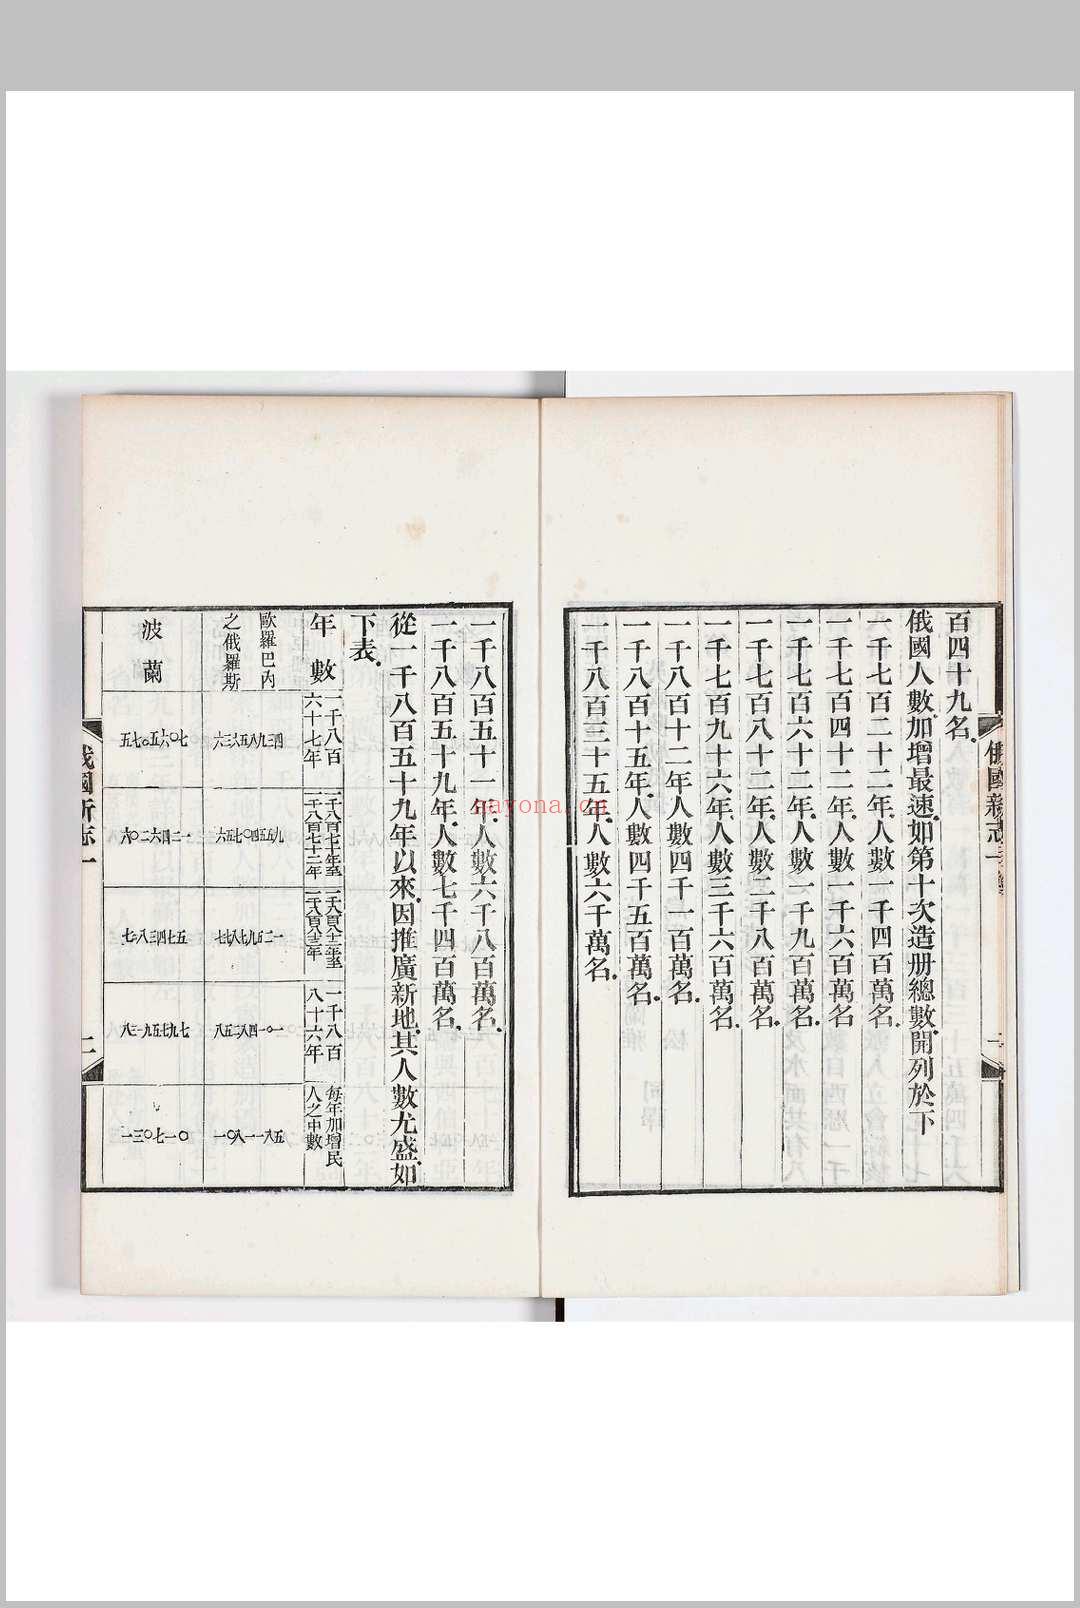 百四十九名
俄國人數加增最速如第十次造册總數開列於下
一千七百二十二年人數一千四百萬名
一千七百四十二年人數一千六百萬名
一千七百六十二年人數一千九百萬名
一千七百八十二年人數二千八百萬名
一千七百九十六年人數三千六百萬名
一千八百十二年人數四千一百萬名
一千八百十五年人數四千五百萬名
一千八百三十五年人數六千萬名
一千八百五十一年人數六千八百萬名
一千八百五十九年人數七千四百萬名
從一千八百五十九年以來因推廣新地其人數尤盛如
下表
年數
一千八百六十七年
一千八百七十年至一千八百七十二年
一千八百八十六年
每年加增民人之中數
歐羅巴內之俄羅斯
波蘭
五七〇五六〇七
六〇二六四二一
一三〇七一〇
俄國新志
二
nayona.cn